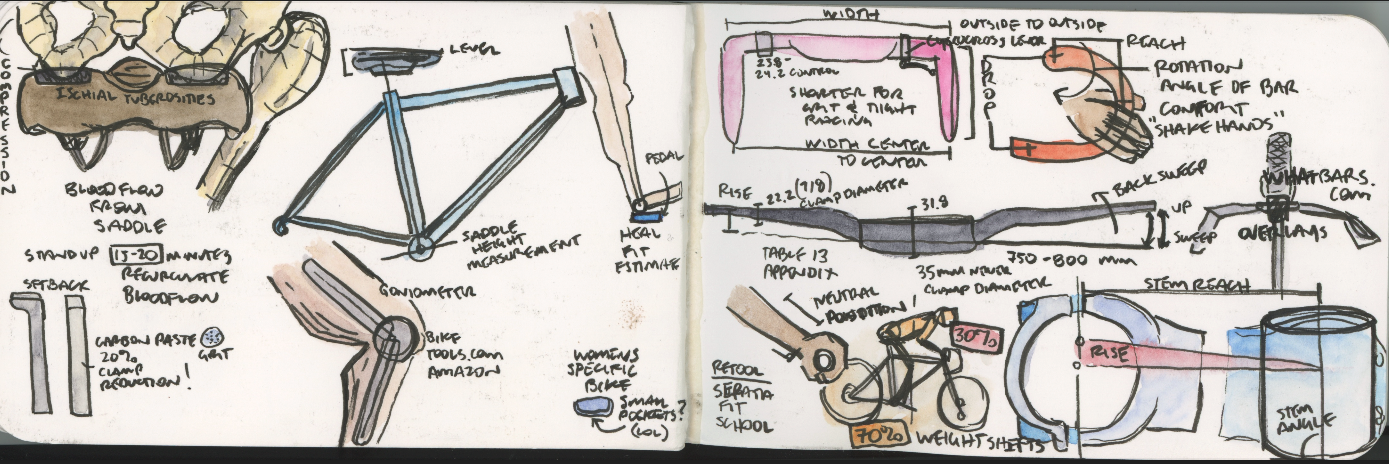 COMPRESSION
ISCHIAL TUBEROSITIES
BLOODFLOW
FROM
SADDLE
STAND UP 15-20 MINUTES
RECIRCULATE
BLOODFLOW
SETBACK
CARBON PASTE
20%
CLAMP
REDUCTION!
GRIT
LEVEL
SADDLE
HEIGHT
MEASUREMENT
GONIOMETER
BIKE
TOOLS.COM
AMAZON
PEDAL
HEAL
FIT
ESTIMATE
WOMENS
SPECIFIC
BIKE
SMALL
POCKETS?
(LOL)
WIDTH
OUTSIDE TO OUTSIDE
CYCLOCROSS LEVER
23.8-
24.2 CONTROL
SHORTER FOR
CRIT & TIGHT
RACING
WIDTH CENTER
TO CENTER
DROP
REACH
ROTATION
ANGLE OF BAR
COMFORT
"SHAKE HANDS"
RISE
22.2 (7/8)
CLAMP DIAMETER
31.8
BACKSWEEP
UP
SWEEP
WHATBARS.
COM
OVERLAYS
750-800 mm
TABLE 13
APPENDIX
35mm
CLAMP DIAMETER
NEUTRAL
POSITION!
30%
70%
WEIGHT SHIFTS
RETOOL
FIT
SCHOOL
STEM REACH
RISE
STEM
ANGLE